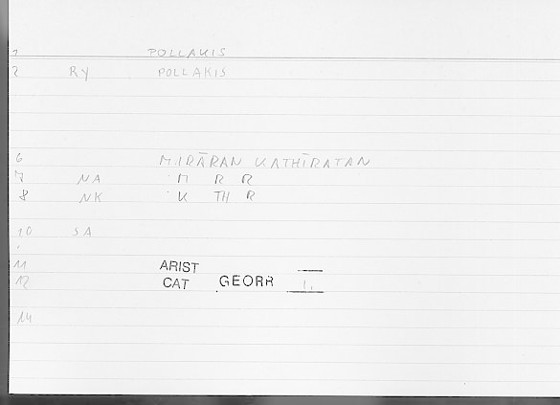 1 POLLAKIS
2 RY POLLAKIS
6 MIRĀRAN KATHĪRATAN
7 NA M R R
8 NK K TH R
10 SA
11 ARIST
12 CAT GEORR 1.
14